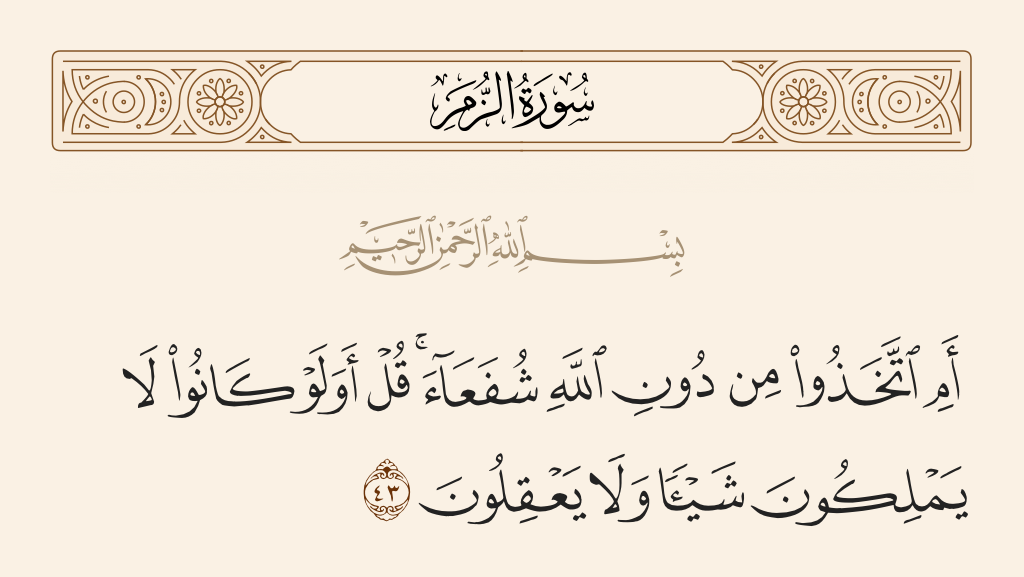 سُورَةُ الزُّمَرِ
بِسْمِ ٱللَّهِ ٱلرَّحْمَٰنِ ٱلرَّحِيمِ
أَمِ ٱتَّخَذُوا۟ مِن دُونِ ٱللَّهِ شُفَعَآءَ ۚ قُلْ أَوَلَوْ كَانُوا۟ لَا
يَمْلِكُونَ شَيْـًٔا وَلَا يَعْقِلُونَ ٤٣